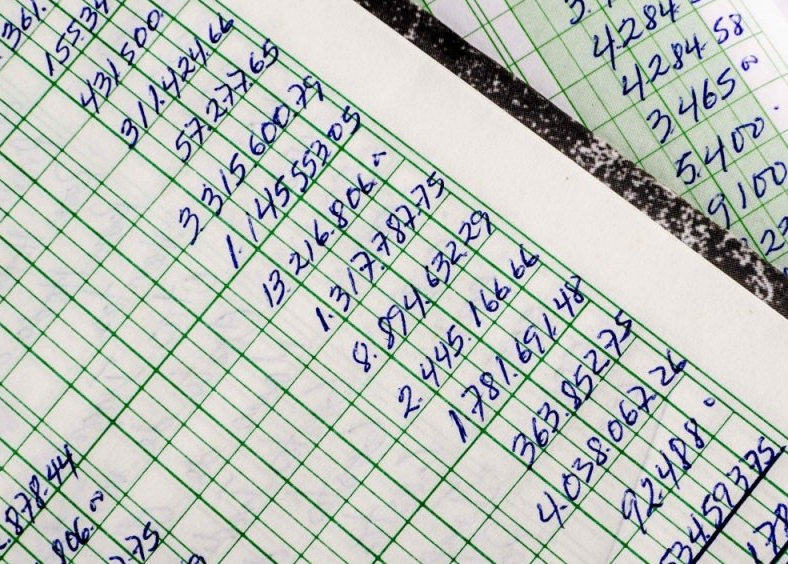 361.
15534
431500.
311.424.66
57.277.65
3315600.79
1.145553.05
13.216.806.00
1.317.787.75
8.894.632.29
2.445.166.66
1781.691.48
363.852.75
4.038.067.26
92.488.
534.593.75
178
.878.44
806.00
2.75
4284
4284.58
3465 00
5.400.
9100